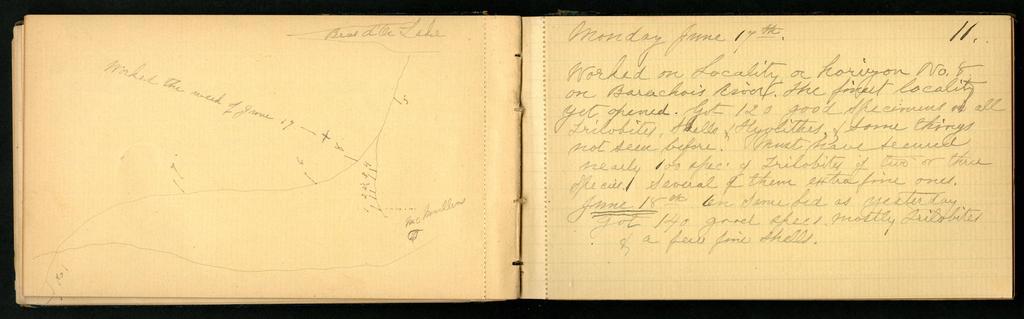 Bras d'Or Lake
Worked the week of June 17
8
5
McMullen
Monday June 17th.
11.
Worked on Locality or horizon No. 8
on Barachois River. The finest locality
yet opened. Got 120 good specimens in all
Trilobites, Shells, Hyolithes, & some things
not seen before. Must have secured
nearly 100 spec. of Trilobites of two or three
species. Several of them extra fine ones.
June 18th In same bed as yesterday
Got 140 good specs. mostly Trilobites
& a few fine Shells.